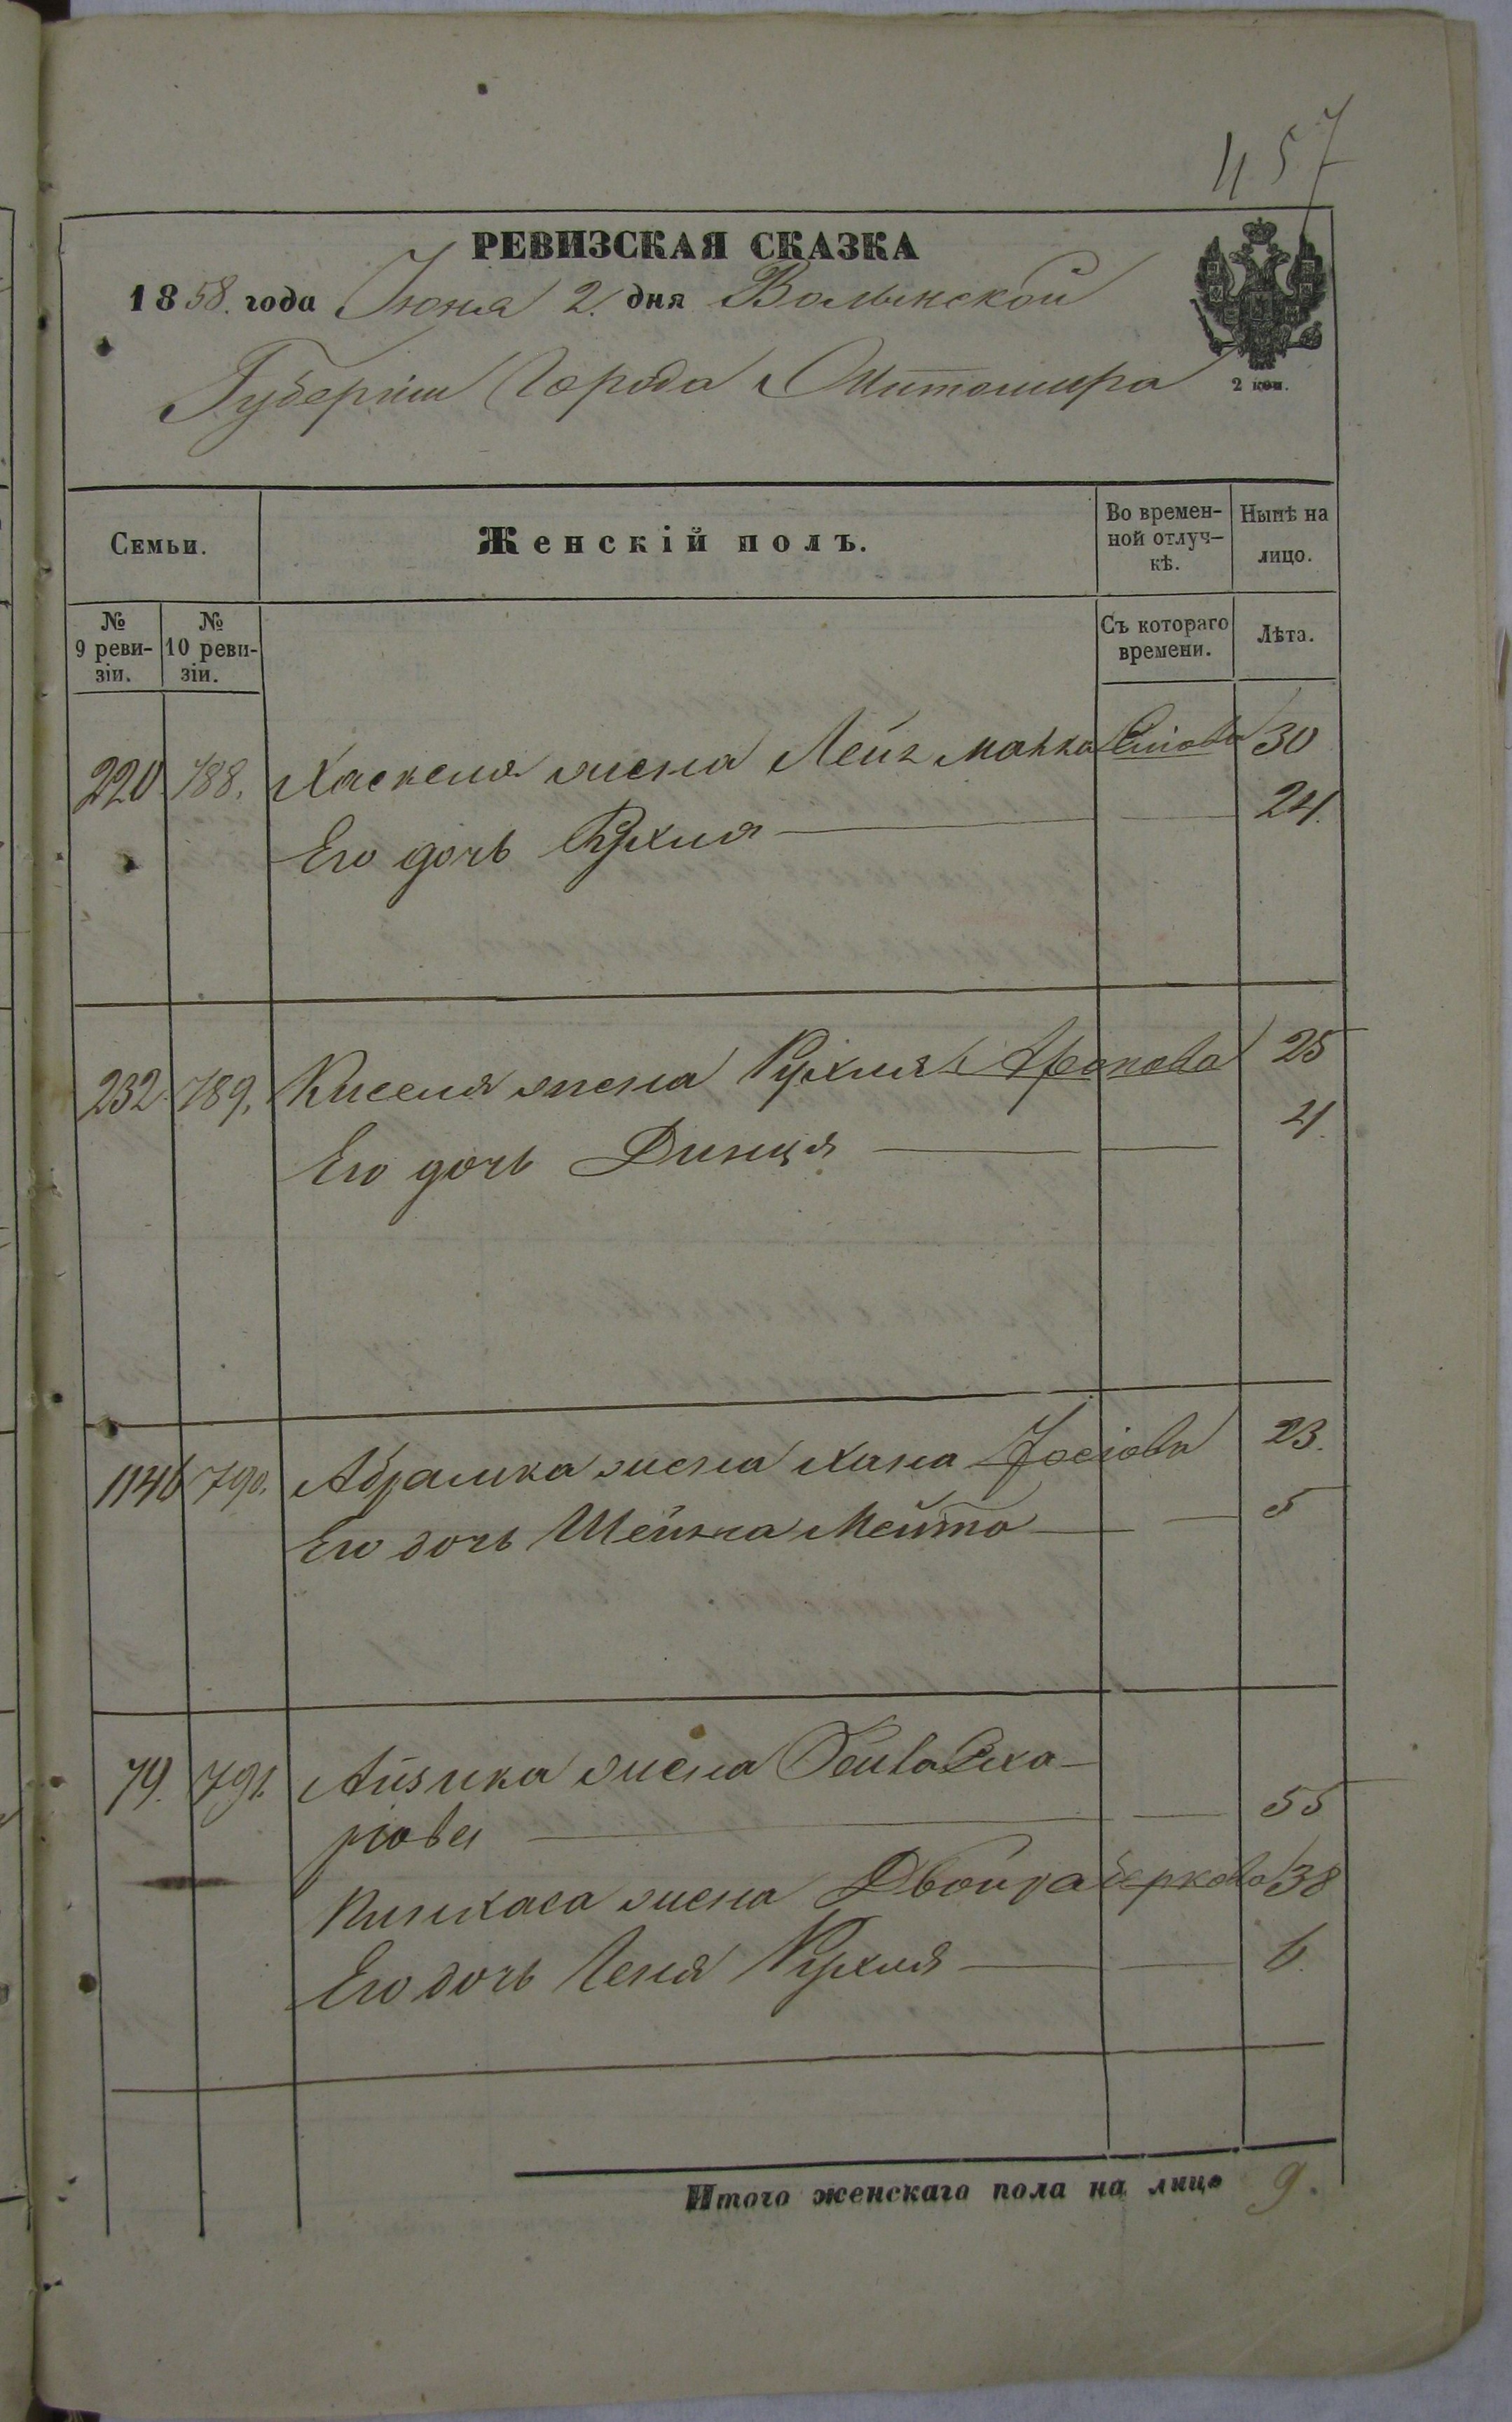 457
РЕВИЗСКАЯ СКАЗКА
1858. года Июня 2. дня Волынской
Губерніи Города Житомира
2 коп.
Семьи.
Женскій полъ.
Во времен-
ной отлуч-
кѣ.
Нынѣ на
лицо.
№
9 реви-
зіи.
№
10 реви-
зіи.
Съ котораго
времени.
Лѣта.
220 788. Хаскеля жена Лея 30
Его дочь Рухля 24.
232. 789. Киселя жена Рухля Аронова 25
Его дочь Динця 4.
1146 790. Абрамка жена Хана Іосіова 23.
Его дочь Шейна Мейта 5
79. 791. Айзика жена
55
Пинхаса жена Двойра Беркова 38
Его дочь Геня Рухля 6.
Итого женскаго пола на лицо 9.